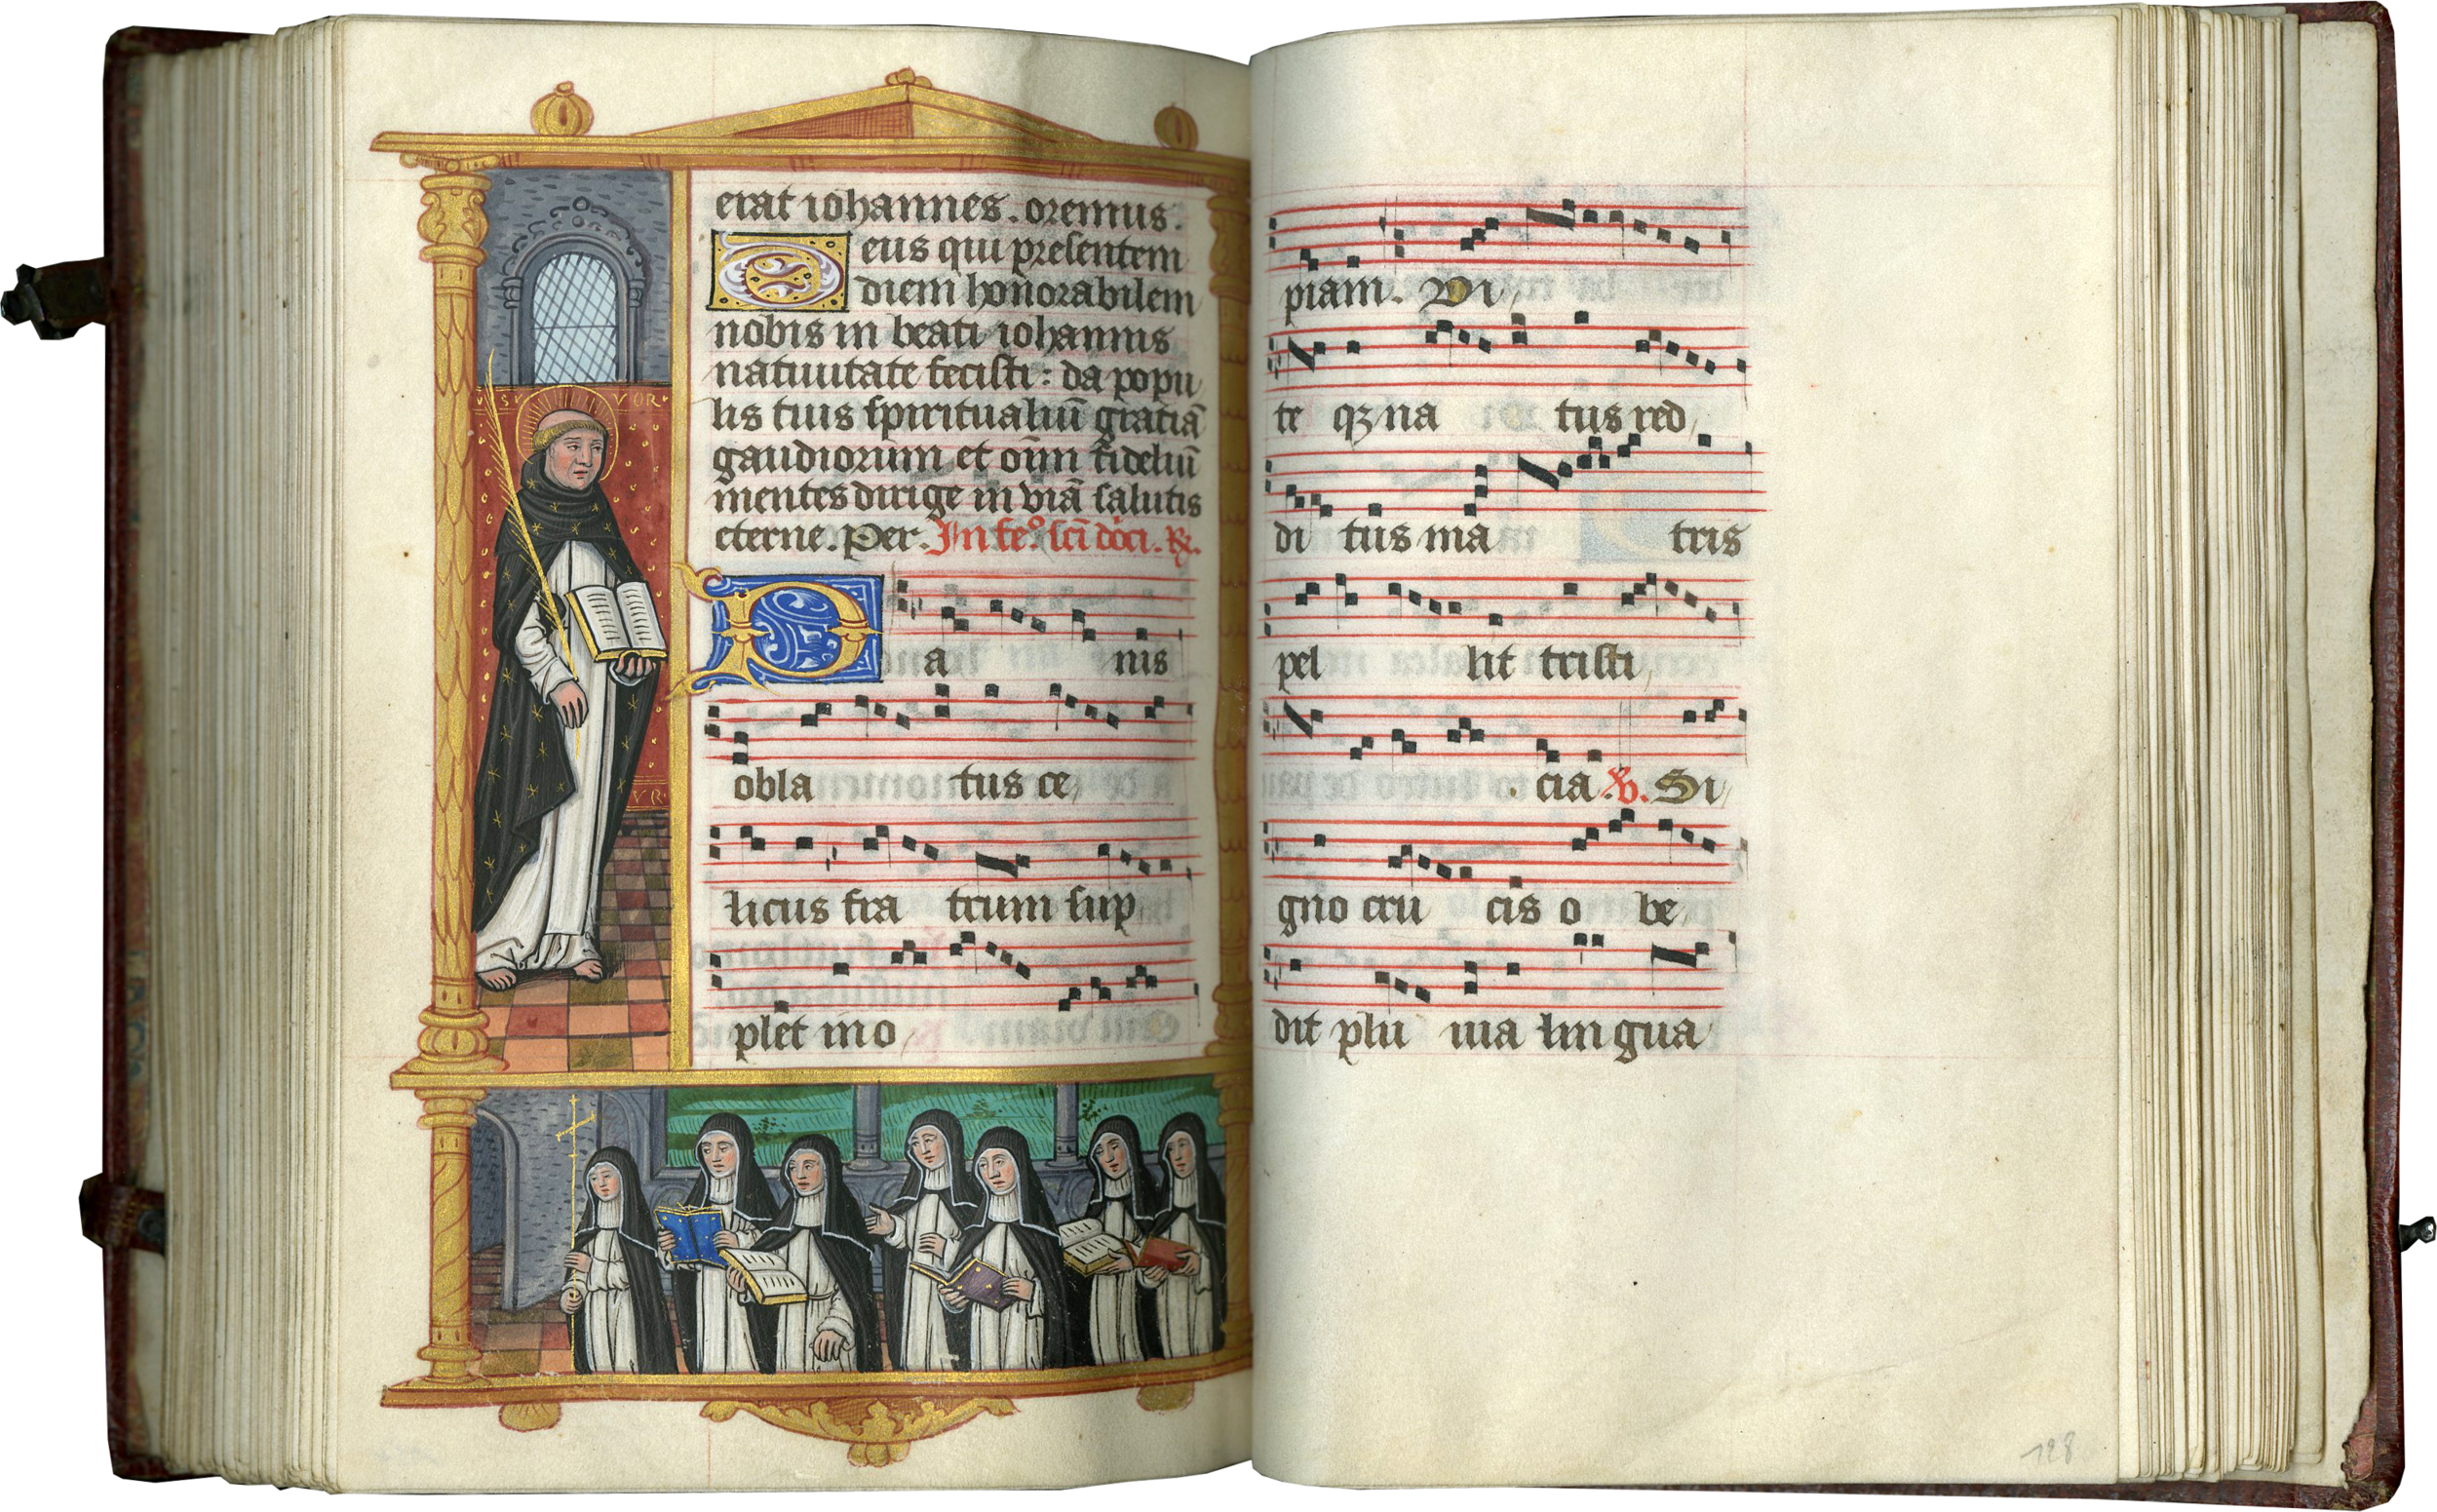 erat iohannes. oremus.
Deus qui presentem
diem honorabilem
nobis in beati iohannis
natiuitate fecisti: da popu
lis tuis spiritualiū gratiā
gaudiorum et oīm fideliū
mentes dirige in viā salutis
eterne. Per. In fe.º scī dōci. ℟.
Pa nis
obla tus ce,
licus fra trum sup
plet ino,
piam. Vi,
te qꝫ na tus red,
di tus ma tris
pel lit tristi,
cia ℣. Si,
gno cru cis o be,
dit plu uia lingua
128